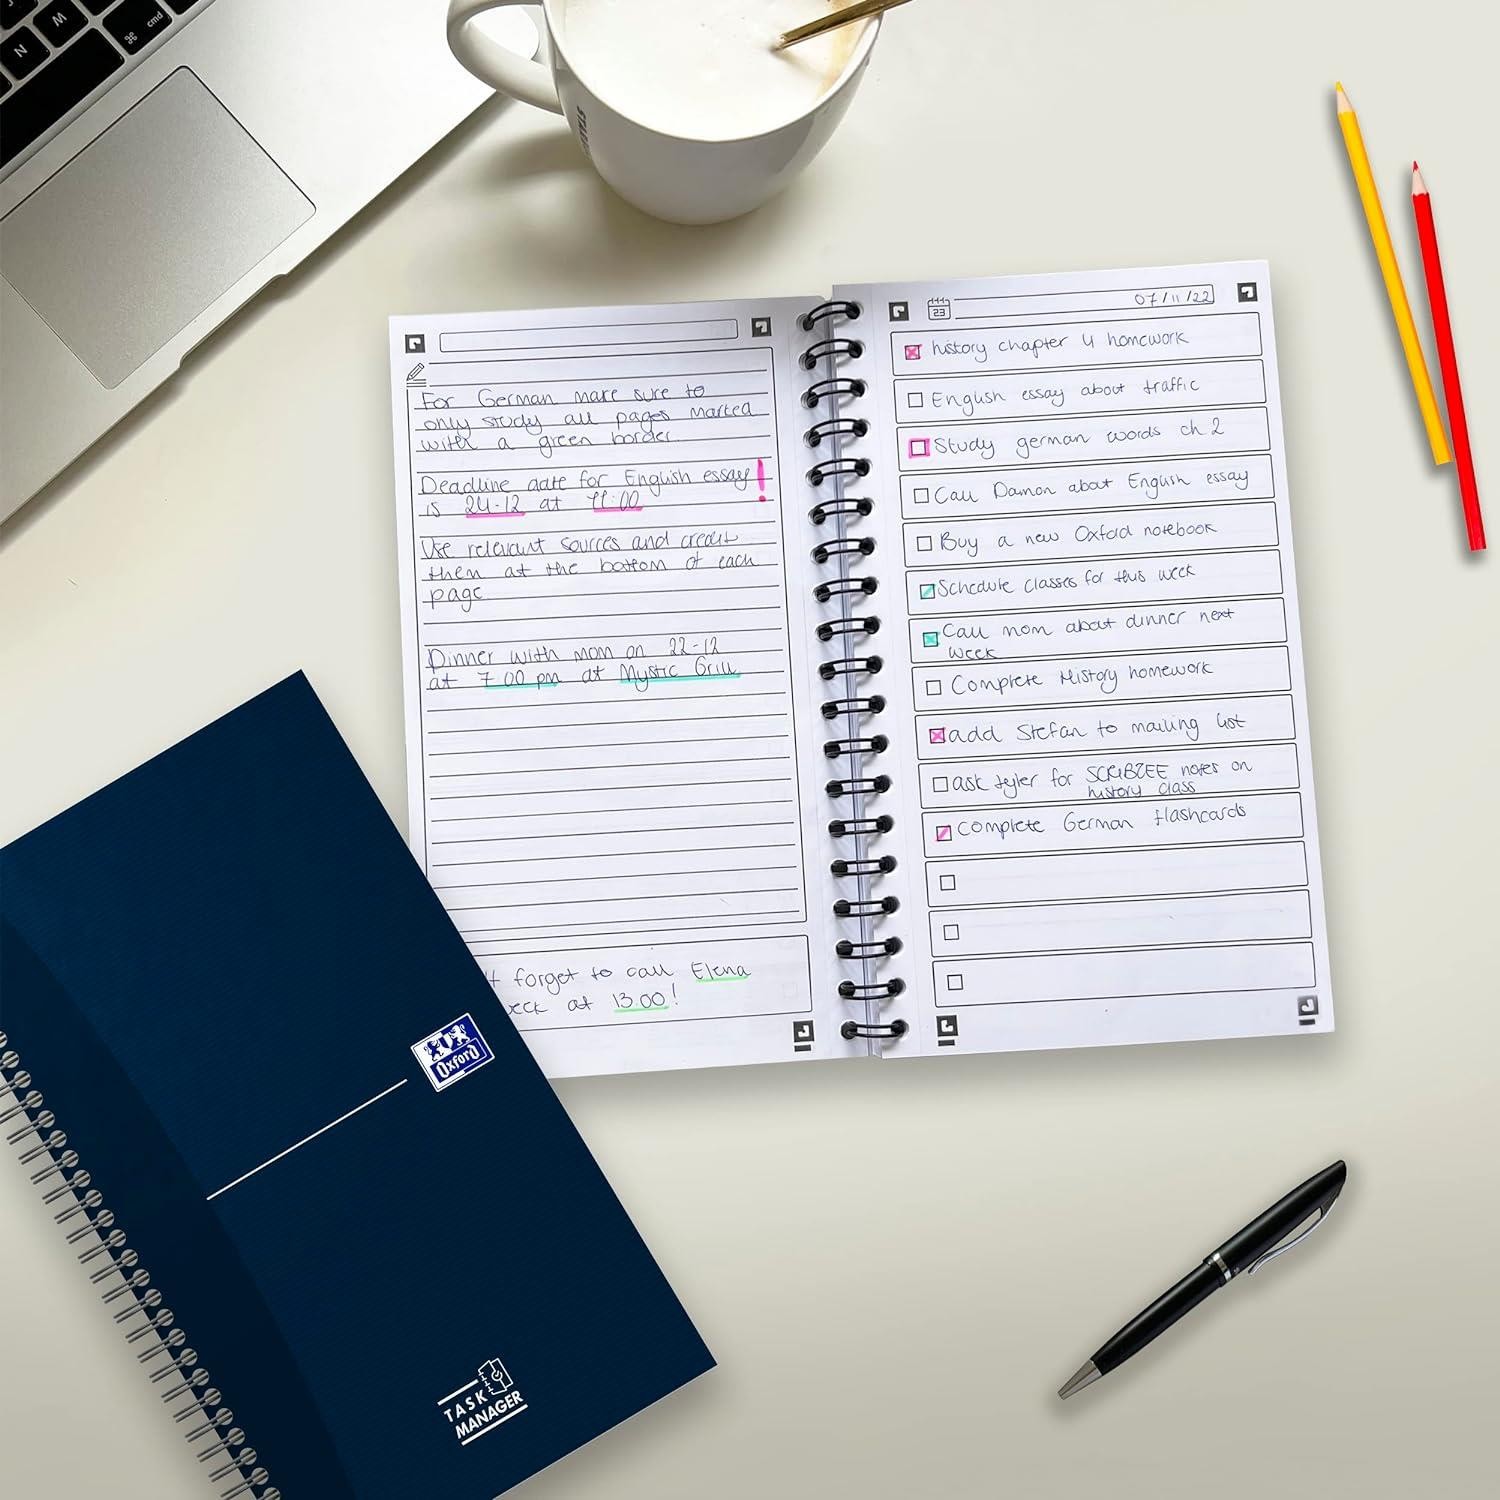 N
M
⌘
cmd
STARBUCKS
For German make sure to
only study all pages marked
with a green border.
Deadline date for English essay!
is 24-12 at 11:00
Use relevant sources and credit
them at the bottom of each
page
Dinner with mom on 22-12
at 7.00 pm at Mystic Grill
forget to call Elena
at 13.00!
23
07/11/22
history chapter 4 homework
English essay about traffic
Study german words ch.2
Call Damon about English essay
Buy a new Oxford notebook
Schedule classes for this week
Call mom about dinner next
week
Complete History homework
add Stefan to mailing list
ask tyler for SCRIBZEE notes on
history class
complete German flashcards
Oxford
TASK
MANAGER